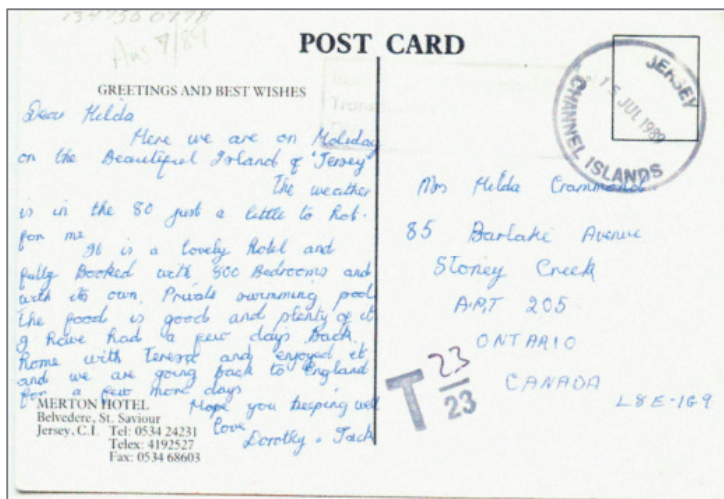 1347560778
Ans 7/89
POST CARD
GREETINGS AND BEST WISHES
Dear Hilda
Here we are on Holiday
on the Beautiful Island of "Jersey"
The weather
is in the 80 just a little to hot.
for me
It is a lovely Hotel and
fully Booked with 800 Bedrooms and
with its own. Private swimming pool
the food is good and plenty of it
I have had a few days Back
home with Teresa and enjoyed it
and we are going back to England
for a few more days
Hope you keeping well
Love
Dorothy. Jack
MERTON HOTEL
Belvedere, St. Saviour
Jersey, C.I. Tel: 0534 24231
Telex: 4192527
Fax: 0534 68603
JERSEY
15 JUL 1989
CHANNEL ISLANDS
Mrs Hilda
85 Avenue
Stoney Creek
APT 205
ONTARIO
CANADA
L8E-1G9
T 23
23